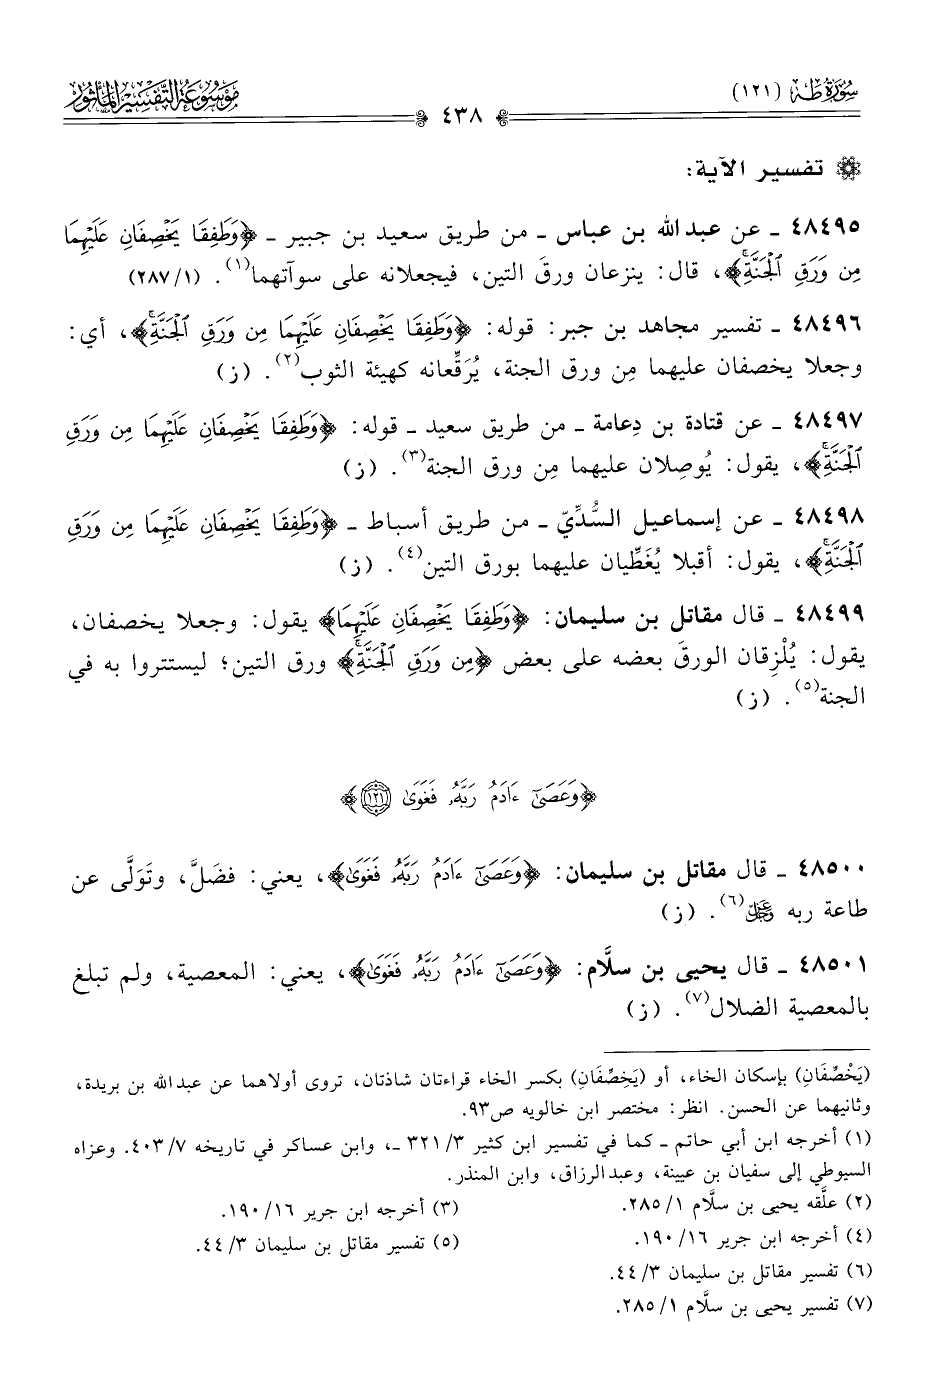 سُورَةُ طٰه (١٢١)
٤٣٨
مَوْسُوعَةُ التَّفْسِيرِ المَأْثُورِ
تفسير الآية:
٤٨٤٩٥ ـ عن عبد الله بن عباس ـ من طريق سعيد بن جبير ـ ﴿وَطَفِقَا يَخْصِفَانِ عَلَيْهِمَا
مِن وَرَقِ ٱلْجَنَّةِۚ﴾، قال: ينزعان ورقَ التين، فيجعلانه على سوآتهما(١). (١/٢٨٧)
٤٨٤٩٦ ـ تفسير مجاهد بن جبر: قوله: ﴿وَطَفِقَا يَخْصِفَانِ عَلَيْهِمَا مِن وَرَقِ ٱلْجَنَّةِۚ﴾، أي:
وجعلا يخصفان عليهما مِن ورق الجنة، يُرَقِّعانه كهيئة الثوب(٢). (ز)
٤٨٤٩٧ ـ عن قتادة بن دِعامة ـ من طريق سعيد ـ قوله: ﴿وَطَفِقَا يَخْصِفَانِ عَلَيْهِمَا مِن وَرَقِ
ٱلْجَنَّةِۚ﴾، يقول: يُوصِلان عليهما مِن ورق الجنة(٣). (ز)
٤٨٤٩٨ ـ عن إسماعيل السُّدِّيّ ـ من طريق أسباط ـ ﴿وَطَفِقَا يَخْصِفَانِ عَلَيْهِمَا مِن وَرَقِ
ٱلْجَنَّةِۚ﴾، يقول: أقبلا يُغَطِّيان عليهما بورق التين(٤). (ز)
٤٨٤٩٩ ـ قال مقاتل بن سليمان: ﴿وَطَفِقَا يَخْصِفَانِ عَلَيْهِمَا﴾ يقول: وجعلا يخصفان،
يقول: يُلْزِقان الورقَ بعضه على بعض ﴿مِن وَرَقِ ٱلْجَنَّةِۚ﴾ ورق التين؛ ليستتروا به في
الجنة(٥). (ز)
﴿وَعَصَىٰٓ ءَادَمُ رَبَّهُۥ فَغَوَىٰ ١٢١﴾
٤٨٥٠٠ ـ قال مقاتل بن سليمان: ﴿وَعَصَىٰٓ ءَادَمُ رَبَّهُۥ فَغَوَىٰ﴾، يعني: فضَلَّ، وتَوَلَّى عن
طاعة ربه عَزَّ وَجَلَّ(٦). (ز)
٤٨٥٠١ ـ قال يحيى بن سلَّام: ﴿وَعَصَىٰٓ ءَادَمُ رَبَّهُۥ فَغَوَىٰ﴾، يعني: المعصية، ولم تبلغ
بالمعصية الضلال(٧). (ز)
(يَخْصِّفَانِ) بإسكان الخاء، أو (يَخِصِّفَانِ) بكسر الخاء قراءتان شاذتان، تروى أولاهما عن عبد الله بن بريدة،
وثانيهما عن الحسن. انظر: مختصر ابن خالويه ص٩٣.
(١) أخرجه ابن أبي حاتم ـ كما في تفسير ابن كثير ٣/ ٣٢١ ـ، وابن عساكر في تاريخه ٧/ ٤٠٣. وعزاه
السيوطي إلى سفيان بن عيينة، وعبد الرزاق، وابن المنذر.
(٢) علَّقه يحيى بن سلَّام ١/ ٢٨٥. (٣) أخرجه ابن جرير ١٦/ ١٩٠.
(٤) أخرجه ابن جرير ١٦/ ١٩٠. (٥) تفسير مقاتل بن سليمان ٣/ ٤٤.
(٦) تفسير مقاتل بن سليمان ٣/ ٤٤.
(٧) تفسير يحيى بن سلَّام ١/ ٢٨٥.